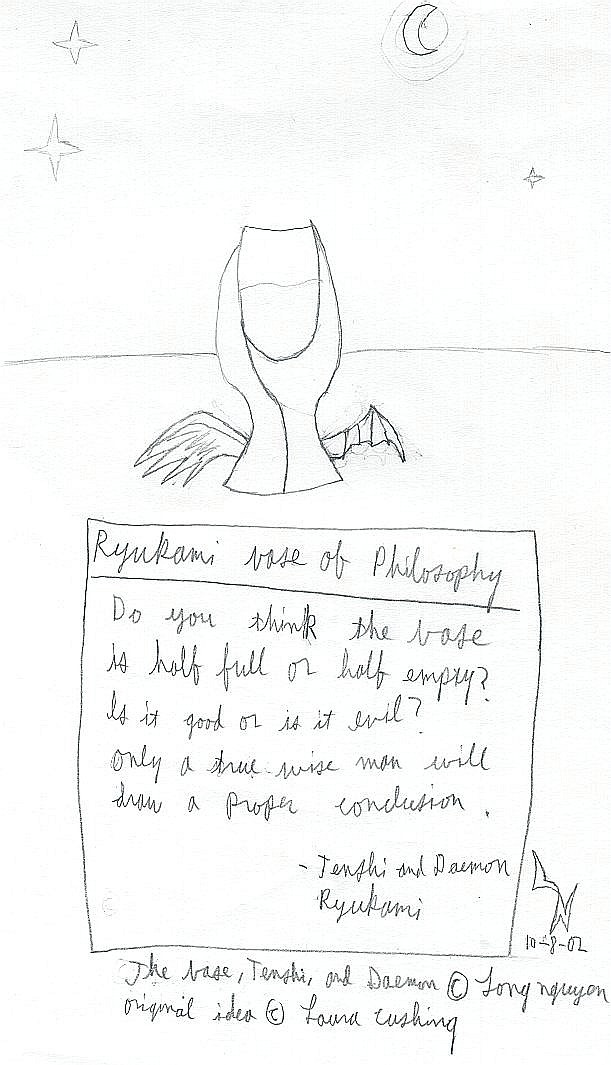 Ryukami vase of Philosophy
Do you think the vase
is half full or half empty?
Is it good or is it evil?
only a true wise man will
draw a proper conclusion.
- Tenshi and Daemon
Ryukami
10-8-02
The vase, Tenshi, and Daemon © Long nguyen
original idea © Laura Cushing